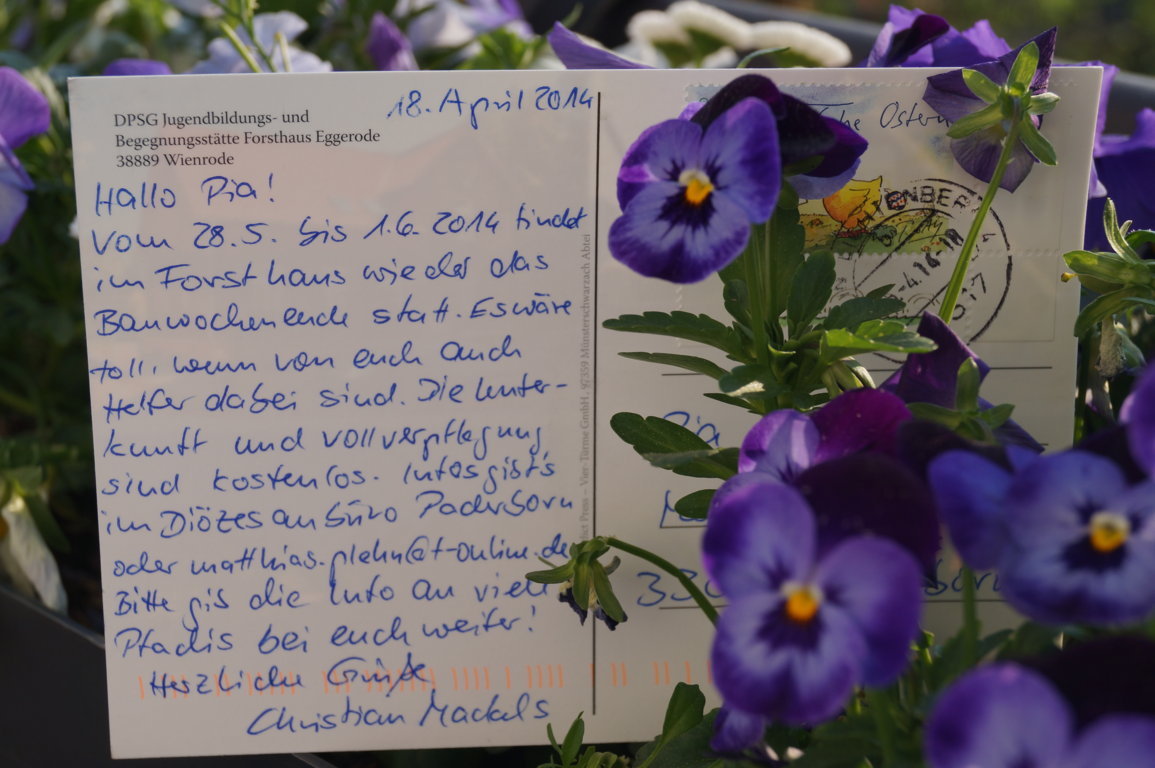 DPSG Jugendbildungs- und
Begegnungsstätte Forsthaus Eggerode
38889 Wienrode
18. April 2014
Hallo Pia!
Vom 28.5. bis 1.6.2014 findet
im Forsthaus wieder das
Bauwochenende statt. Es wäre
toll, wenn von euch auch
Helfer dabei sind. Die Unter-
kunft und Vollverpflegung
sind kostenlos. Infos gibt's
im Diözesanbüro Paderborn
oder matthias.plehn@t-online.de
Bitte gib die Info an viele
Pfadis bei euch weiter!
Herzliche Grüße
Christian Mackels
Press – Vier-Türme GmbH, 97359 Münsterschwarzach Abtei
Ostern
Pia